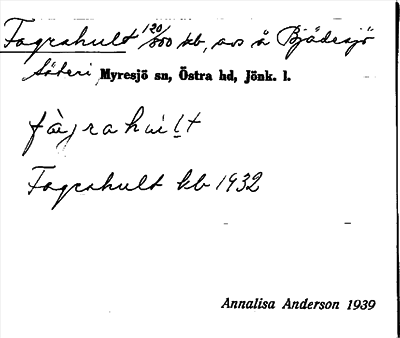 Fagrahult 120/800 kb, avs å Bjädesjö
Säteri, Myresjö sn, Östra hd, Jönk. l.
fàgrahul̠t
Fagrahult kb 1932
Annalisa Anderson 1939